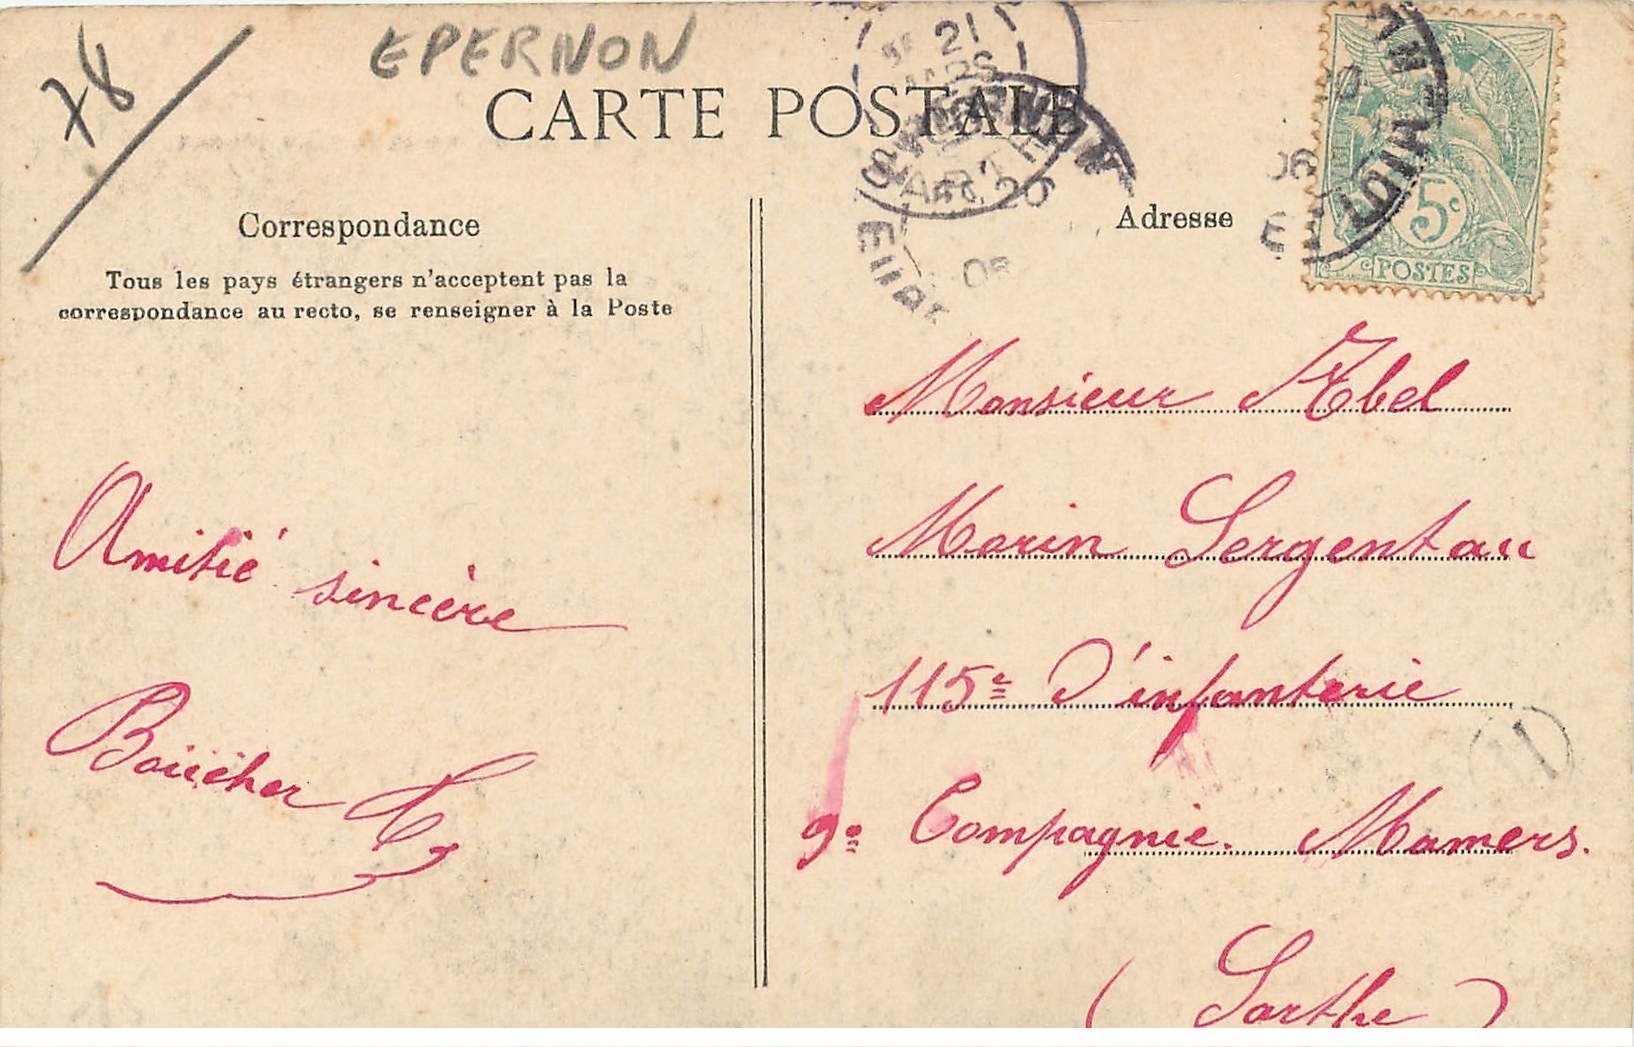 78
EPERNON
CARTE POSTALE
Correspondance
Tous les pays étrangers n'acceptent pas la
correspondance au recto, se renseigner à la Poste
Amitié sincère
Boucher
Adresse
5c
POSTES
21
MARS
20
06
Monsieur Abel
Morin Sergent au
115e d'infanterie
9e Compagnie. Mamers.
(Sarthe)